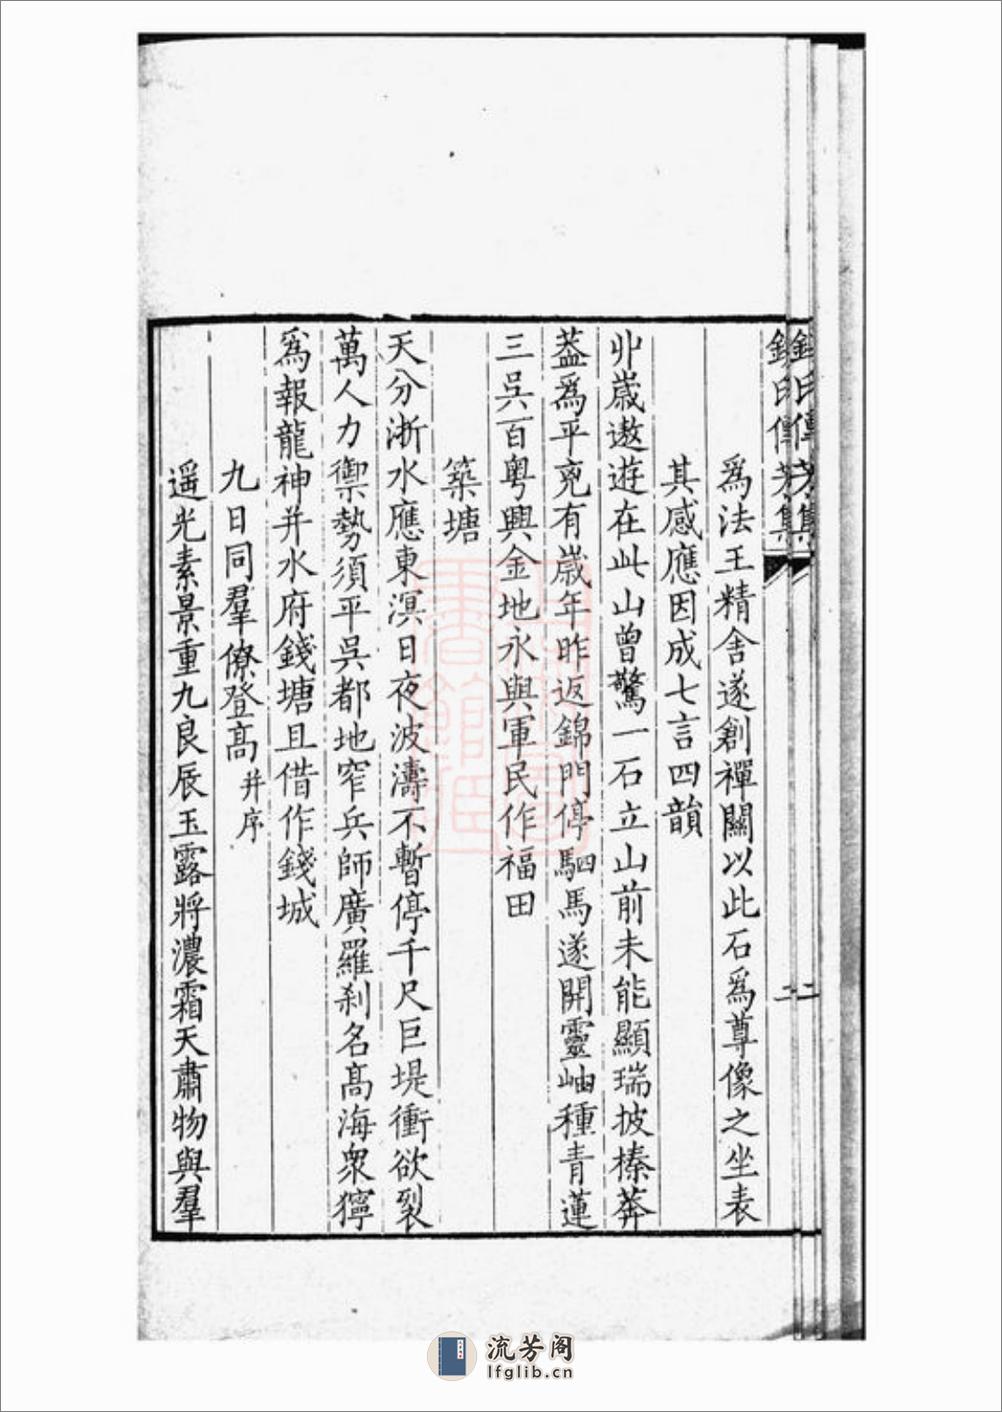 錢氏傳芳集
二
爲法王精舍遂創禪關以此石爲尊像之坐表
其感應因成七言四韻
丱歲遨遊在此山曾驚一石立山前未能顯瑞披榛莽
蓋爲平兇有歲年昨返錦門停駟馬遂開靈岫種青蓮
三吳百粵興金地永與軍民作福田
築塘
天分浙水應東溟日夜波濤不暫停千尺巨堤衝欲裂
萬人力禦勢須平吳都地窄兵師廣羅剎名高海衆獰
爲報龍神并水府錢塘且借作錢城
九日同羣僚登高并序
遥光素景重九良辰玉露將濃霜天肅物與羣
流芳阁
lfglib.cn